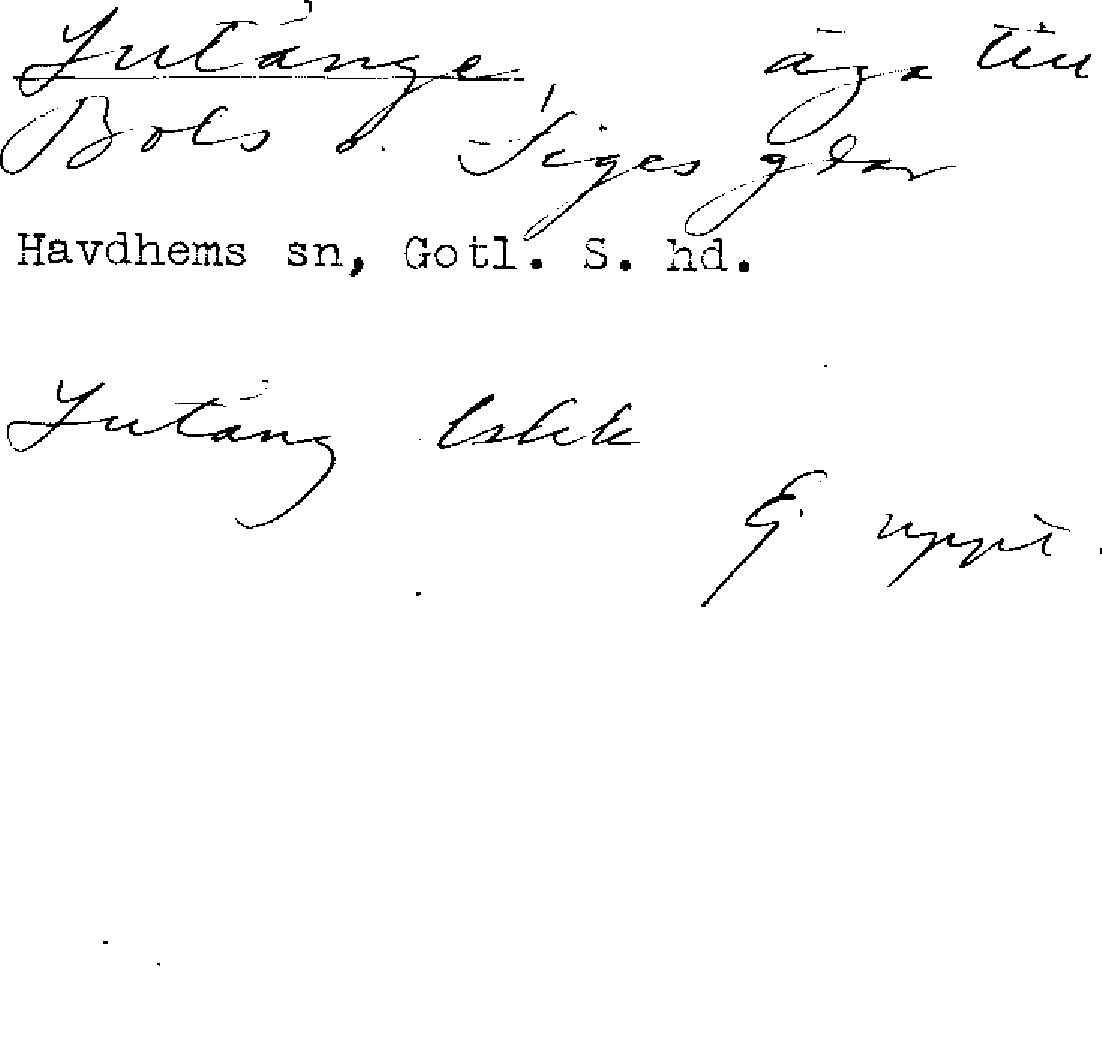 Lutänge, äga till
Bols o. Siges gdar
Havdhems sn, Gotl. S. hd.
Lutäng lskk
Ej uppt.